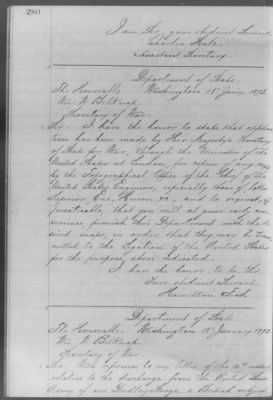 280
I am, Sir, your obedient Servant,
Charles Hale,
Assistant Secretary.
Department of State
The Honorable Washington 18 Jany. 1873.
Wm. W. Belknap,
Secretary of War.
Sir. I have the honor to state that applica-
tion has been made by Her Majesty's Secretary
of State for War, through the Minister of the
United States at London, for copies of any maps
by the Topographical Office of the Chief of the
United States Engineers, especially those of Lakes
Superior Erie, Huron &c, and to request, if
practicable, that you will at your early con-
venience furnish this Department with the de-
sired maps, in order that they may be trans-
mitted to the Legation of the United States
for the purpose above indicated.
I have the honor to be, Sir
Your obedient Servant,
Hamilton Fish.
Department of State
The Honorable Washington 18 January 1873
Wm. W. Belknap
Secretary of War
Sir. With reference to my letter of the
relative to the discharge from the United States
Army of one Dudley a British subject